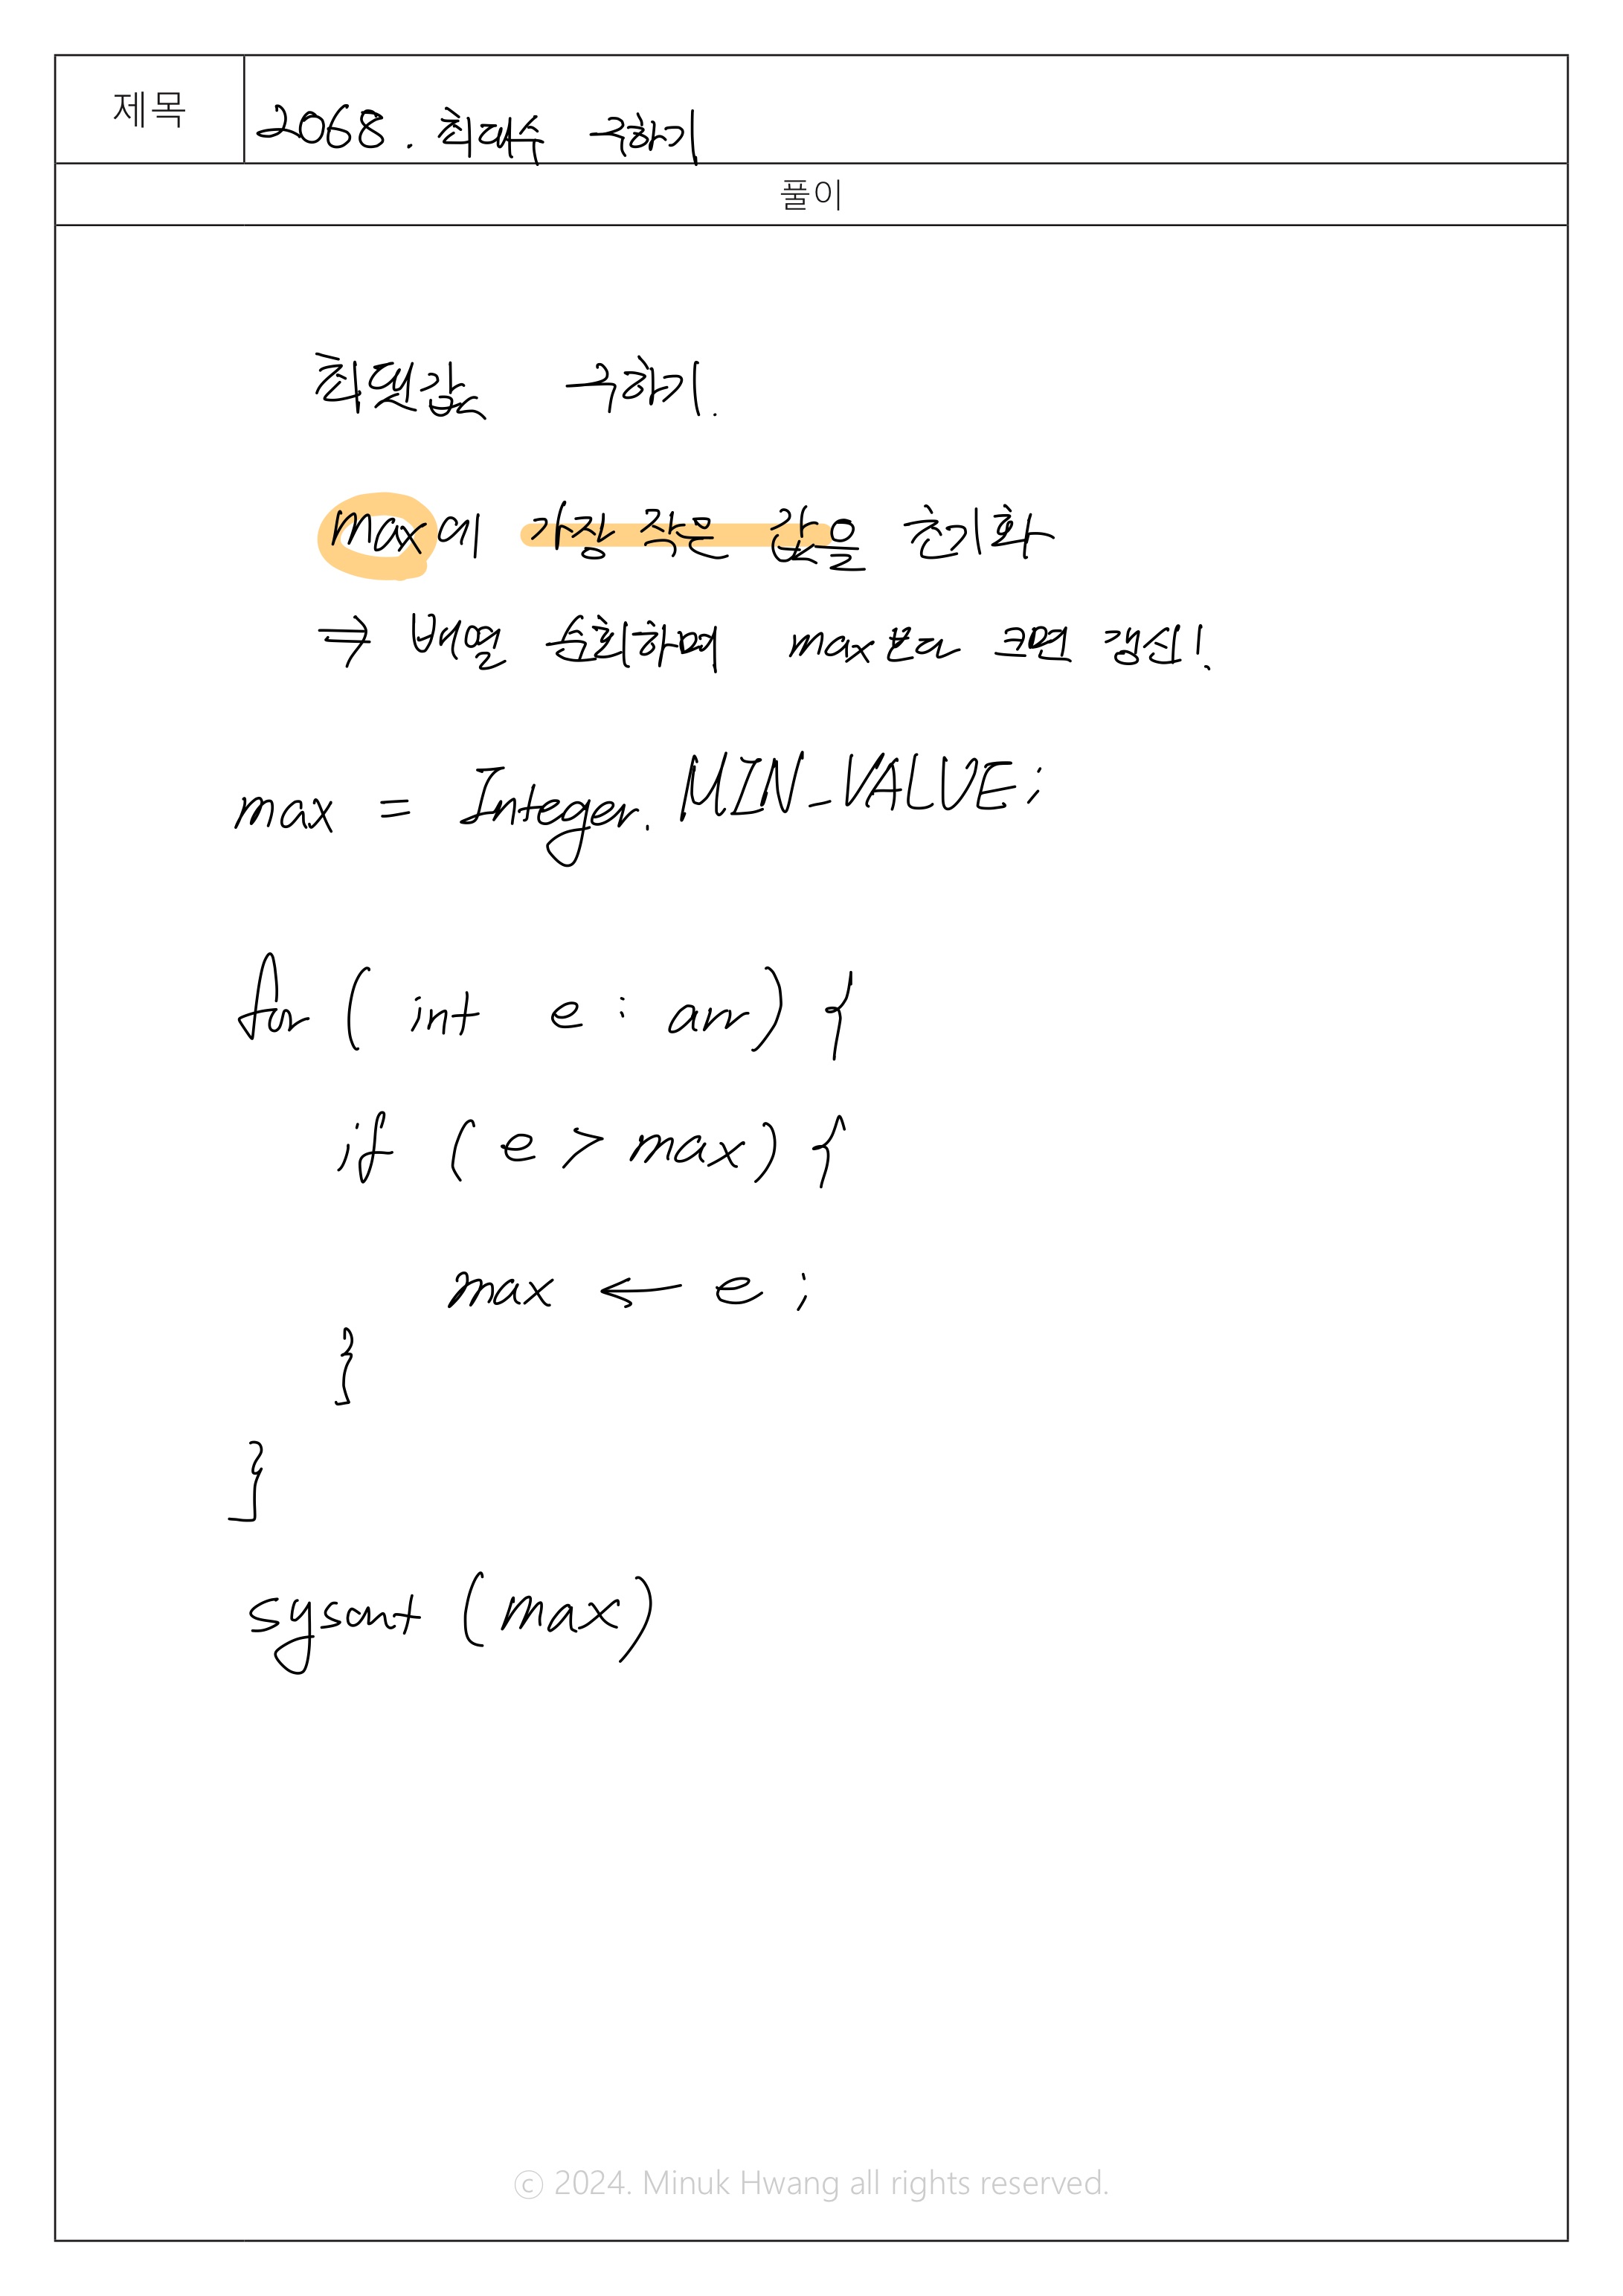 제목
2068. 최대수 구하기
풀이
최댓값 구하기.
max에 가장 작은 값을 초기화
⇒ 배열 순회하며 max보다 크면 갱신!
max = Integer. MIN_VALUE;
for ( int e : arr) {
if ( e > max) {
max ← e ;
}
}
sysout (max)
© 2024. Minuk Hwang all rights reserved.